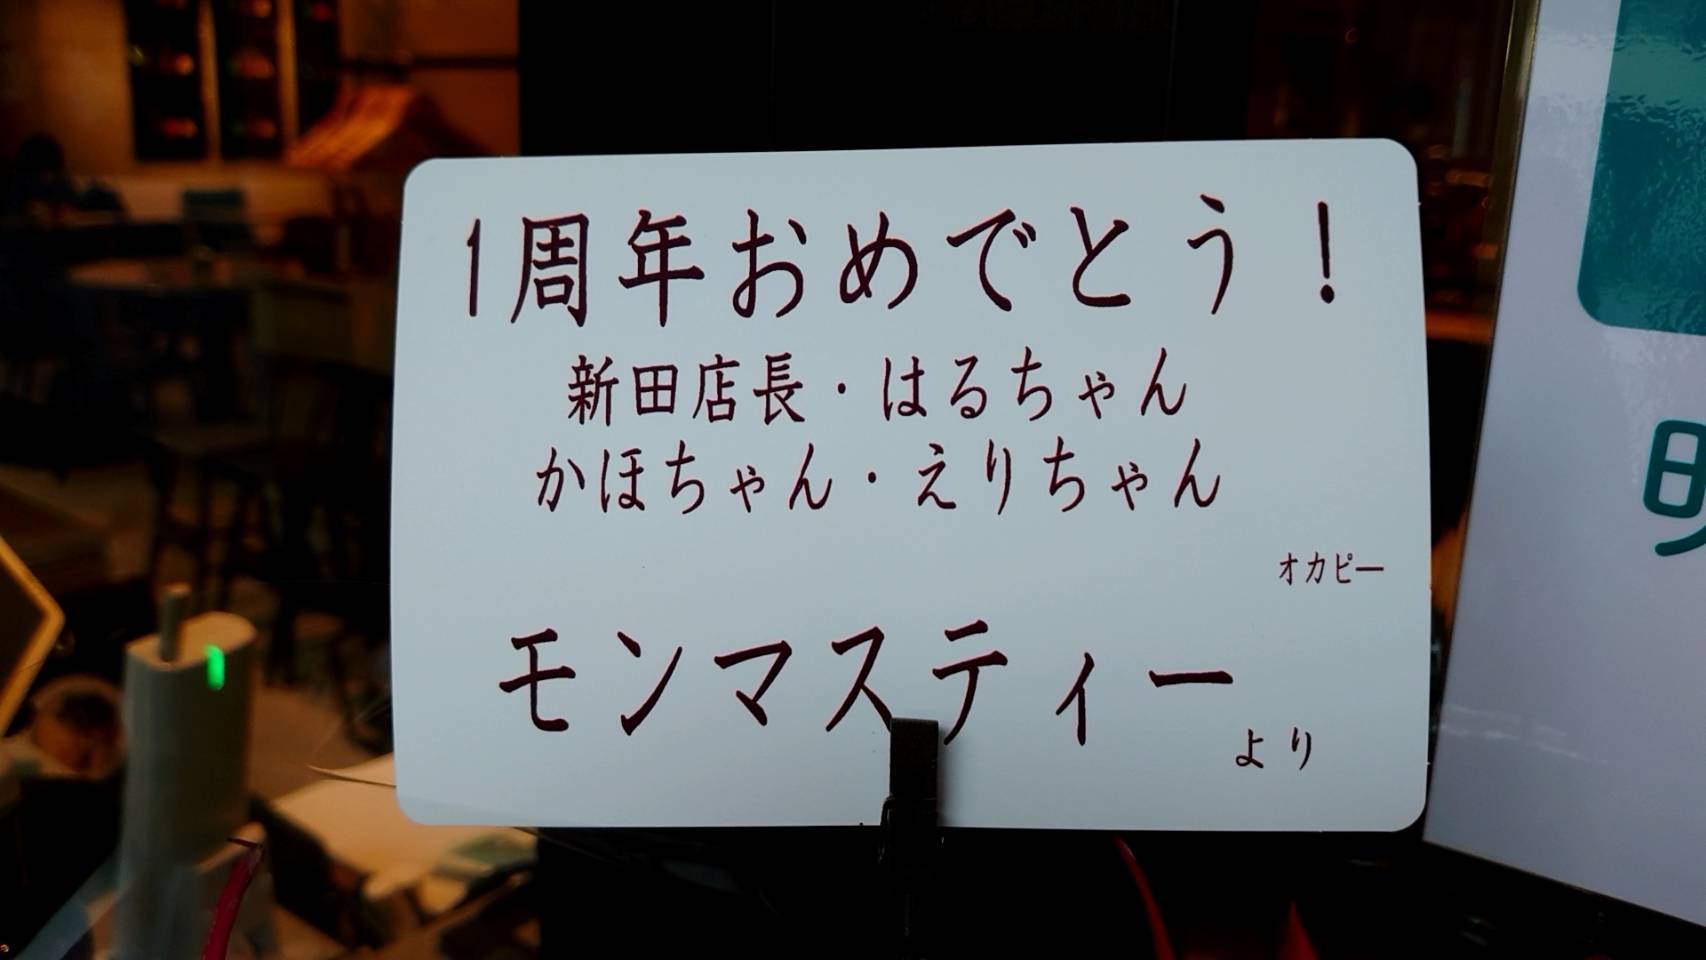 1周年おめでとう！
新田店長・はるちゃん
かほちゃん・えりちゃん
オカピー
モンマスティー
より
明